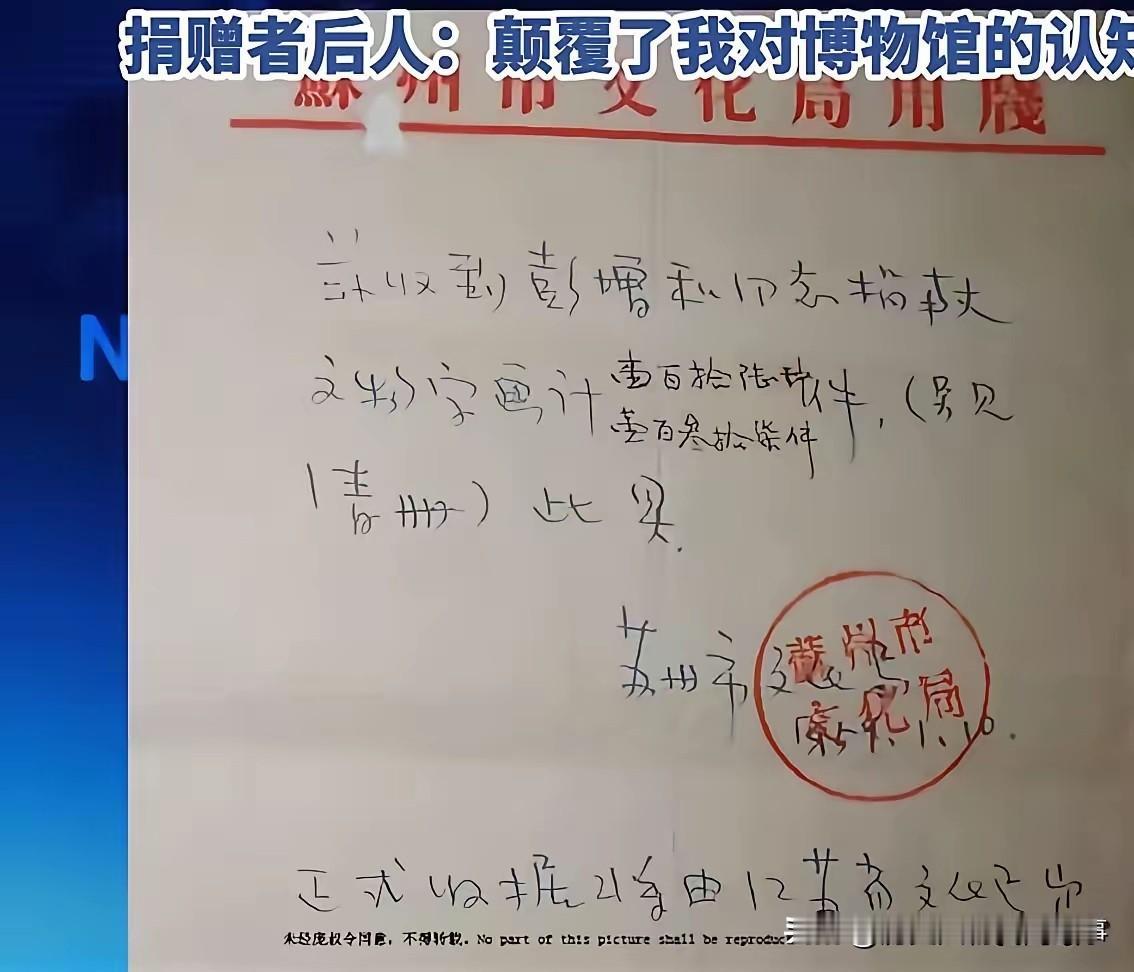 捐赠者后人：颠覆了我对博物馆的认知
蘇州市文化局用牋
N
兹收到彭增和同志捐献
文物字画计壹百拾陆 件，（另见
壹百叁拾柒件
清册）此具.
苏州市文化
蘇州市
文化局
59.1.10.
正式收据将由江苏省文化局
No part of this picture shall be reproduc